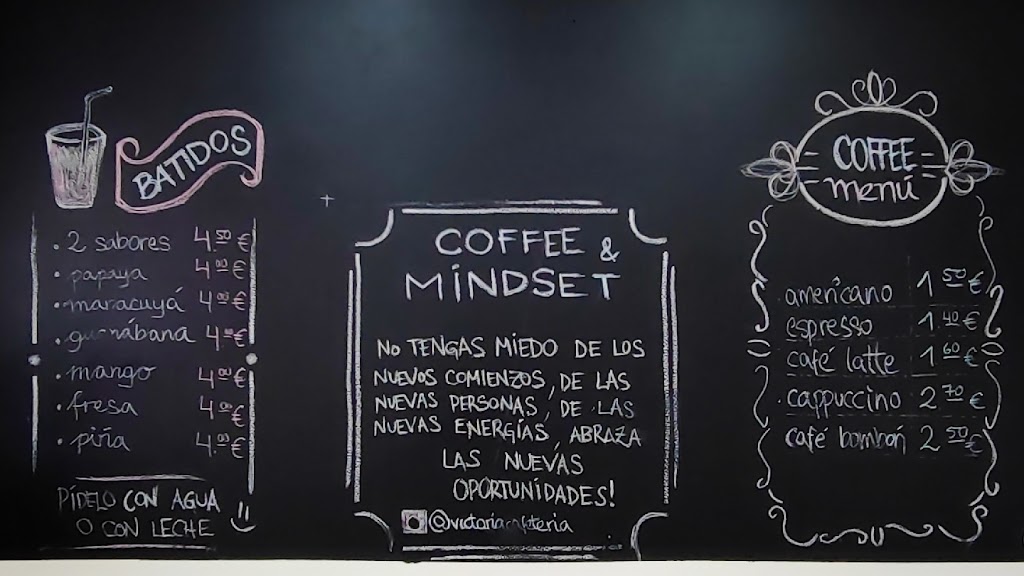 BATIDOS
• 2 sabores 4.50 €
• papaya 4.00 €
• maracuyá 4.00 €
• guanábana 4.00 €
• mango 4.00 €
• fresa 4.00 €
• piña 4.00 €
PÍDELO CON AGUA
O CON LECHE
COFFEE &
MINDSET
NO TENGAS MIEDO DE LOS
NUEVOS COMIENZOS, DE LAS
NUEVAS PERSONAS, DE LAS
NUEVAS ENERGÍAS, ABRAZA
LAS NUEVAS
OPORTUNIDADES!
COFFEE
menú
americano 1.50 €
espresso 1.40 €
café latte 1.60 €
cappuccino 2.70 €
café bombón 2.50 €